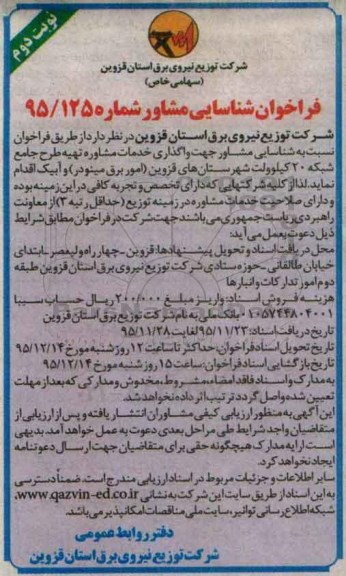 نوبت دوم
شرکت توزیع نیروی برق استان قزوین
(سهامی خاص)
فراخوان شناسایی مشاور شماره ۹۵/۱۲۵
شرکت توزیع نیروی برق استان قزوین در نظر دارد از طریق فراخوان
نسبت به شناسایی مشاور جهت واگذاری خدمات مشاوره تهیه طرح جامع
شبکه ۲۰ کیلوولت شهرستان های قزوین (امور برق مینودر) و آبیک اقدام
نماید. لذا از کلیه شرکتهایی که دارای تخصص و تجربه کافی در این زمینه بوده
و دارای صلاحیت خدمات مشاوره در زمینه توزیع (حداقل رتبه ۳) از معاونت
راهبردی ریاست جمهوری می باشند جهت شرکت در فراخوان مطابق شرایط
ذیل دعوت بعمل می آید:
محل دریافت اسناد و تحویل پیشنهادها: قزوین - چهارراه ولیعصر - ابتدای
خیابان طالقانی - حوزه ستادی شرکت توزیع نیروی برق استان قزوین طبقه
دوم امور تدارکات و انبارها
هزینه فروش اسناد: واریز مبلغ ۲۰۰/۰۰۰ ریال حساب سیبا
۰۱۰۵۷۴۴۸۰۴۰۰۱ بانک ملی به نام شرکت توزیع برق استان قزوین
تاریخ دریافت اسناد: ۹۵/۱۱/۲۳ لغایت ۹۵/۱۱/۲۸
تاریخ تحویل اسناد فراخوان: حداکثر تا ساعت ۱۲ روز شنبه مورخ ۹۵/۱۲/۱۴
تاریخ بازگشایی اسناد فراخوان: ساعت ۱۵ روز شنبه مورخ ۹۵/۱۲/۱۴
به مدارک و اسناد فاقد امضاء، مشروط، مخدوش و مدارکی که بعد از مهلت
تعیین شده واصل گردد ترتیب اثر داده نخواهد شد.
این آگهی به منظور ارزیابی کیفی مشاوران انتشار یافته و پس از ارزیابی از
متقاضیان واجد شرایط طی مراحل بعدی دعوت به عمل خواهد آمد. بدیهی
است ارایه مدارک هیچگونه حقی برای متقاضیان جهت ارسال دعوتنامه
ایجاد نخواهد کرد.
سایر اطلاعات و جزئیات مربوط در اسناد ارزیابی مندرج است. ضمناً دسترسی
به این اسناد از طریق سایت این شرکت به نشانی www.qazvin-ed.co.ir،
شبکه اطلاع رسانی توانیر، سایت ملی مناقصات امکانپذیر می باشد.
دفتر روابط عمومی
شرکت توزیع نیروی برق استان قزوین